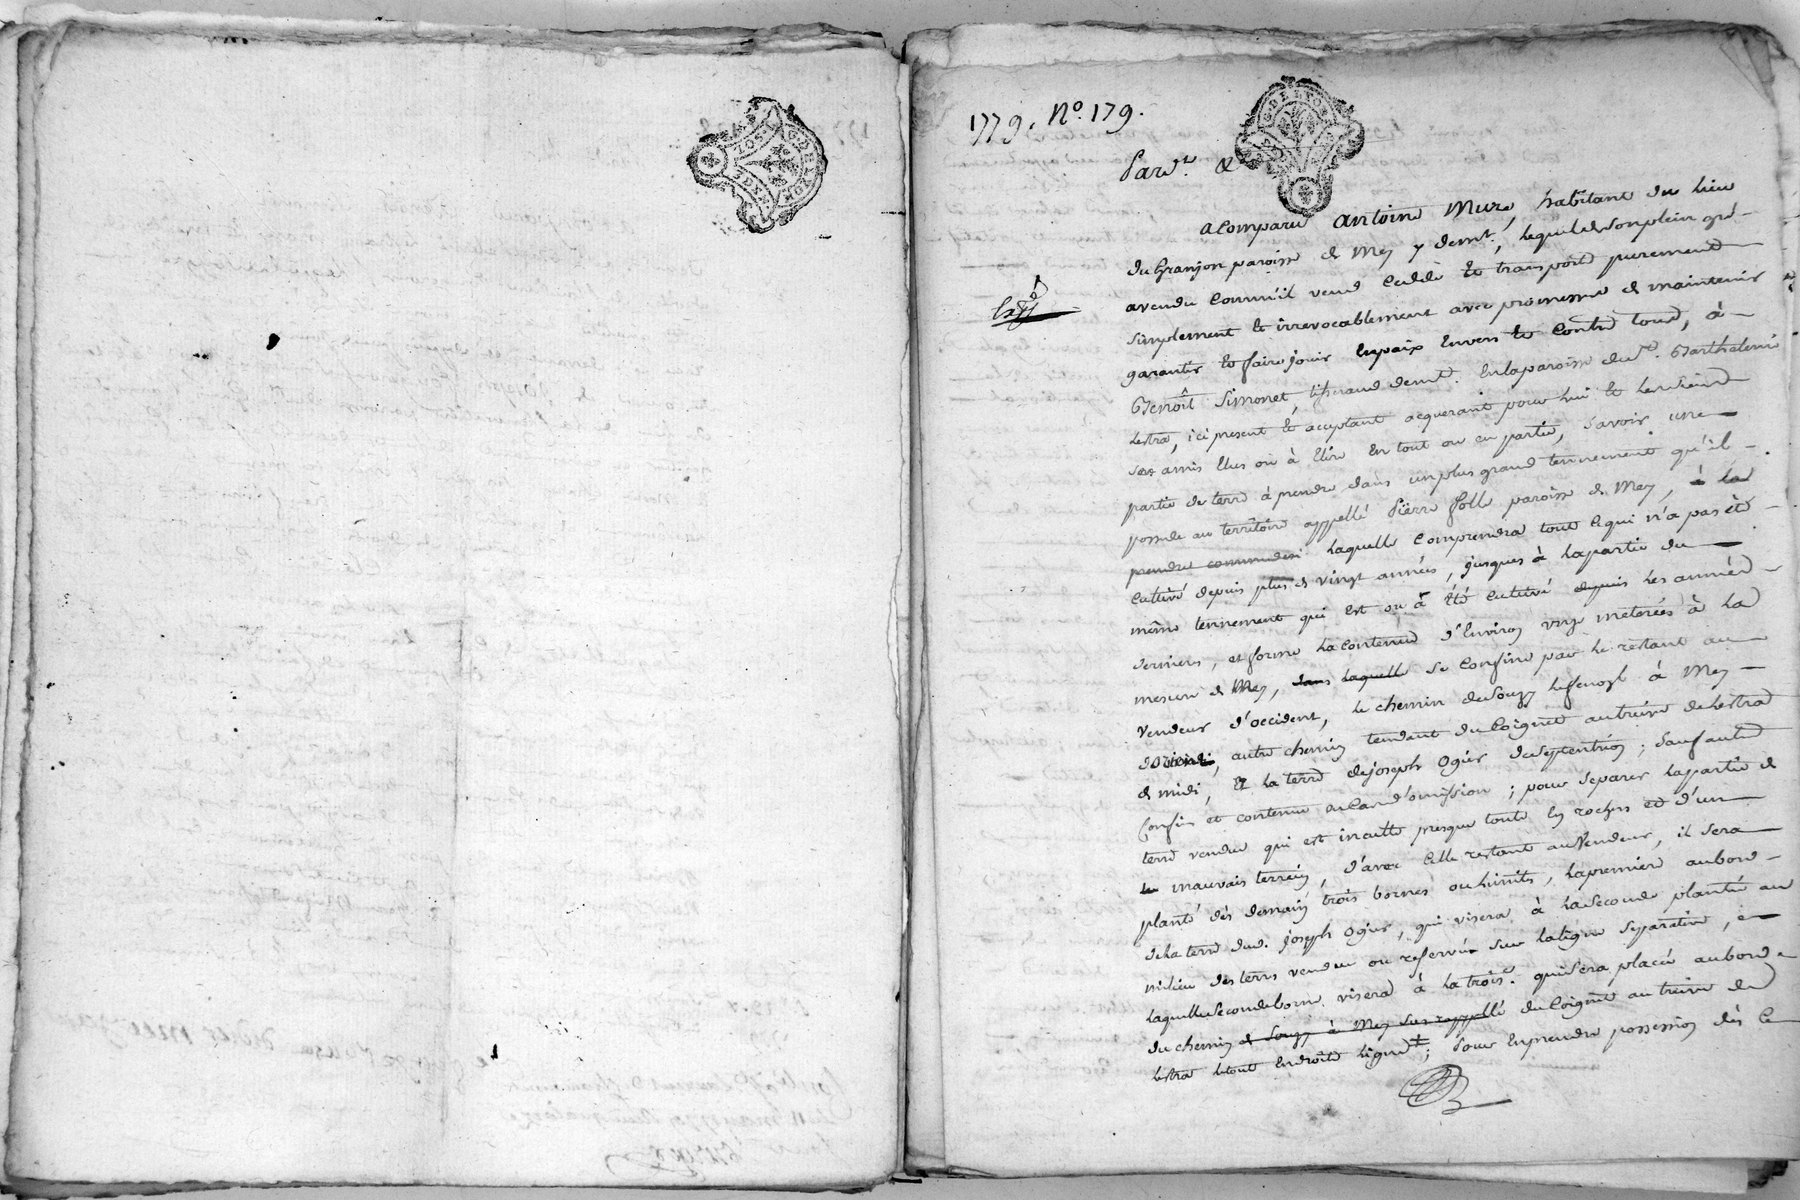 1779. No. 179.
G. DE LYON
Pard.t &
a Comparu antoine Mure, habitant du lieu
du Granjon paroisse de Mey y demt., lequel de son plein gré
a vendu Comme il vend Cedde et transporte purement
simplement et irrevocablement avec promesse de maintenir
garantir et faire jouir en paix Envers et Contre tous, à
Benoît Simonet, tisserand demt. En la paroisse de St. Barthelemi
Lestra, ici present et acceptant acquerant pour lui et les siens
ses amis Elus où à Elire En tout ou en partie, savoir une
partie de terre à prendre dans un plus grand tennement qu'il
possede au territoire appellé Pierre folle paroisse de Mey, à la
prendre laquelle Comprendra tout Ce qui n'a pas été
Cultivé depuis plus de vingt années, jusques à la partie du
même tennement qui Est ou à Eté Cultivé depuis les années
derniers, et forme la Contenue d'Environ metérées à la
mesure de Mey, dans laquelle se Confine par le restant au
vendeur d'occident, le chemin de Souzy à Mey
d'orient, autre chemin tendant du Coignet au treive de Lestra
de midi, Et la terre de joseph Ogier du septentrion; sauf autre
Confins et contenue au Cas d'omission; pour separer la partie de
terre vendue qui est inculte presque toute En rochers et d'un
mauvais terrein, d'avec Celle restant au Vendeur, il sera
planté dès demain trois bornes ou limites, la premiere au bord
de la terre dud. joseph Ogier, qui visera à la seconde plantée au
milieu des terres vendue ou reservée sur la ligne separative, et
laquelle seconde borne visera à la trois.e qui sera placée au bord
du chemin de Souzy à Mey sus rappellé du Coignet au treive de
Lestra le tout En droite ligne; Pour En prendre possession dès Ce